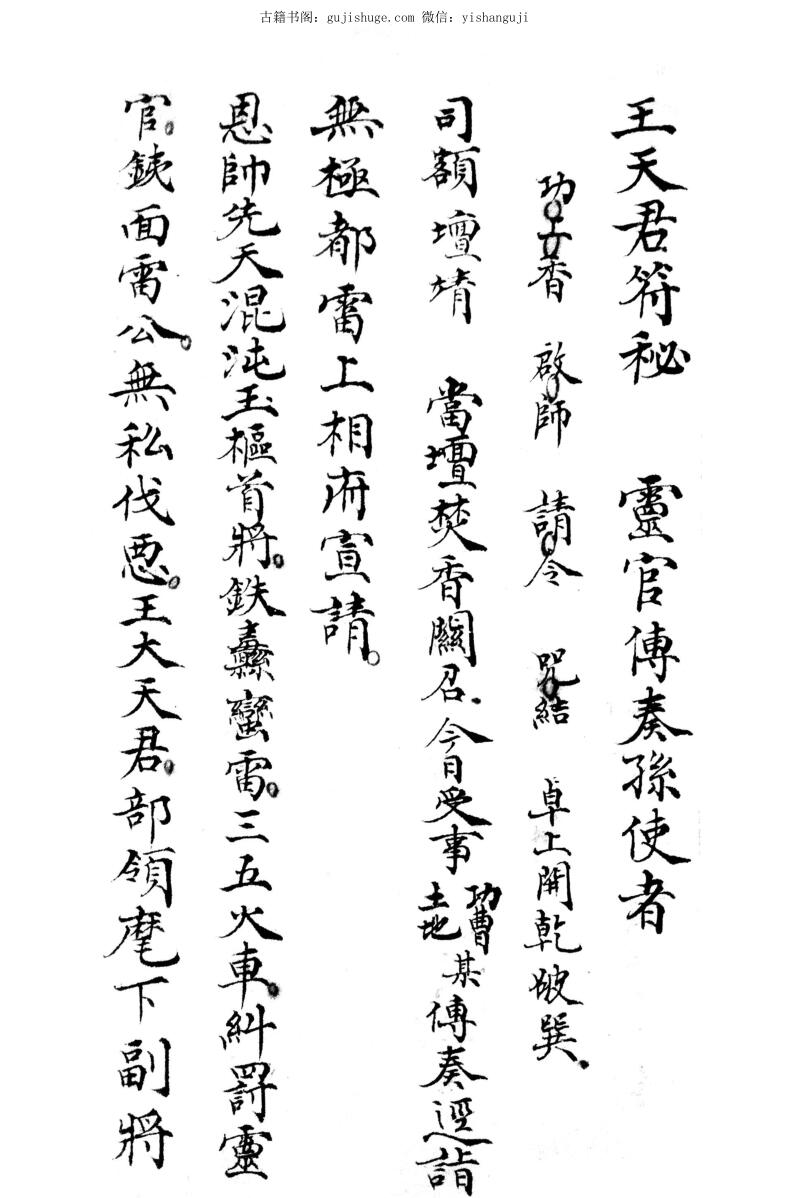 古籍书阁：gujishuge.com 微信：yishanguji
王天君符秘　靈官傳奏孫使者
功上香　啟師　請令　咒結　卓上開乾破巽
司額壇靖　當壇焚香關召今日受事功曹土地某傳奏逕詣
無極都雷上相府宣請。
恩帥先天混沌玉樞首將。鉄纛蠻雷。三五火車。糾罰靈
官。鉄面雷公。無私伐惡。王大天君。部領麾下副將